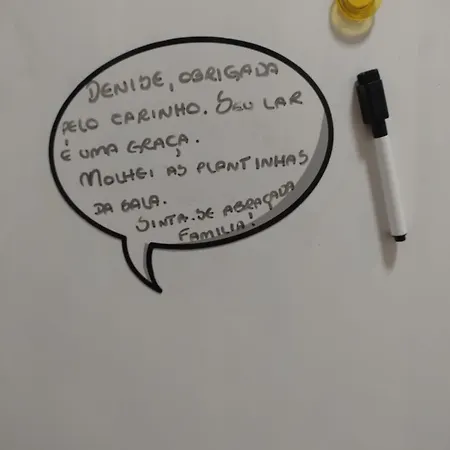 DENISE, OBRIGADA
PELO CARINHO. SEU LAR
É UMA GRAÇA.
MOLHEI AS PLANTINHAS
DA SALA.
SINTA-SE ABRAÇADA
FAMILIA!